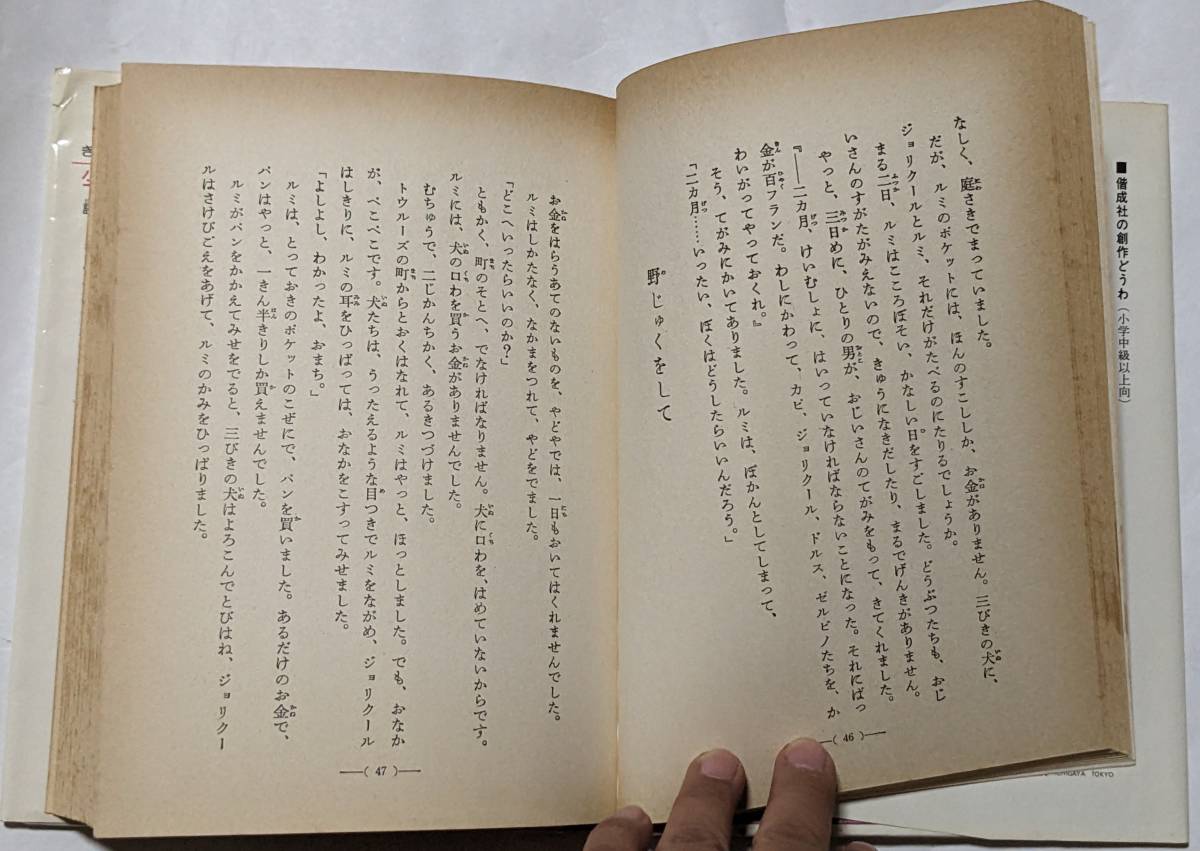 なしく、庭さきでまっていました。
だが、ルミのポケットには、ほんのすこししか、お金がありません。三びきの犬に、
ジョリクールとルミ、それだけがたべるのにたりるでしょうか。
まる二日、ルミはこころぼそい、かなしい日をすごしました。どうぶつたちも、おじ
いさんのすがたがみえないので、きゅうになきだしたり、まるでげんきがありません。
やっと、三日めに、ひとりの男が、おじいさんのてがみをもって、きてくれました。
『――二カ月、けいむしょに、はいっていなければならないことになった。それにばっ
金が百フランだ。わしにかわって、カピ、ジョリクール、ドルス、ゼルビノたちを、か
わいがってやっておくれ。』
そう、てがみにかいてありました。ルミは、ぽかんとしてしまって、
「二カ月……いったい、ぼくはどうしたらいいんだろう。」
野じゅくをして
―( 46 )―
お金をはらうあてのないものを、やどやでは、一日もおいてはくれませんでした。
ルミはしかたなく、なかまをつれて、やどをでました。
「どこへいったらいいのか?」
ともかく、町のそとへ、でなければなりません。犬に口わを、はめていないからです。
ルミには、犬の口わを買うお金がありませんでした。
むちゅうで、二じかんちかく、あるきつづけました。
トウルーズの町からとおくはなれて、ルミはやっと、ほっとしました。でも、おなか
が、ぺこぺこです。犬たちは、うったえるような目つきでルミをながめ、ジョリクール
はしきりに、ルミの耳をひっぱっては、おなかをこすってみせました。
「よしよし、わかったよ、おまち。」
ルミは、とっておきのポケットのこぜにで、パンを買いました。あるだけのお金で、
パンはやっと、一きん半きりしか買えませんでした。
ルミがパンをかかえてみせをでると、三びきの犬はよろこんでとびはね、ジョリクー
ルはさけびごえをあげて、ルミのかみをひっぱりました。
―( 47 )―
■偕成社の創作どうわ（小学中級以上向）
TOKYO